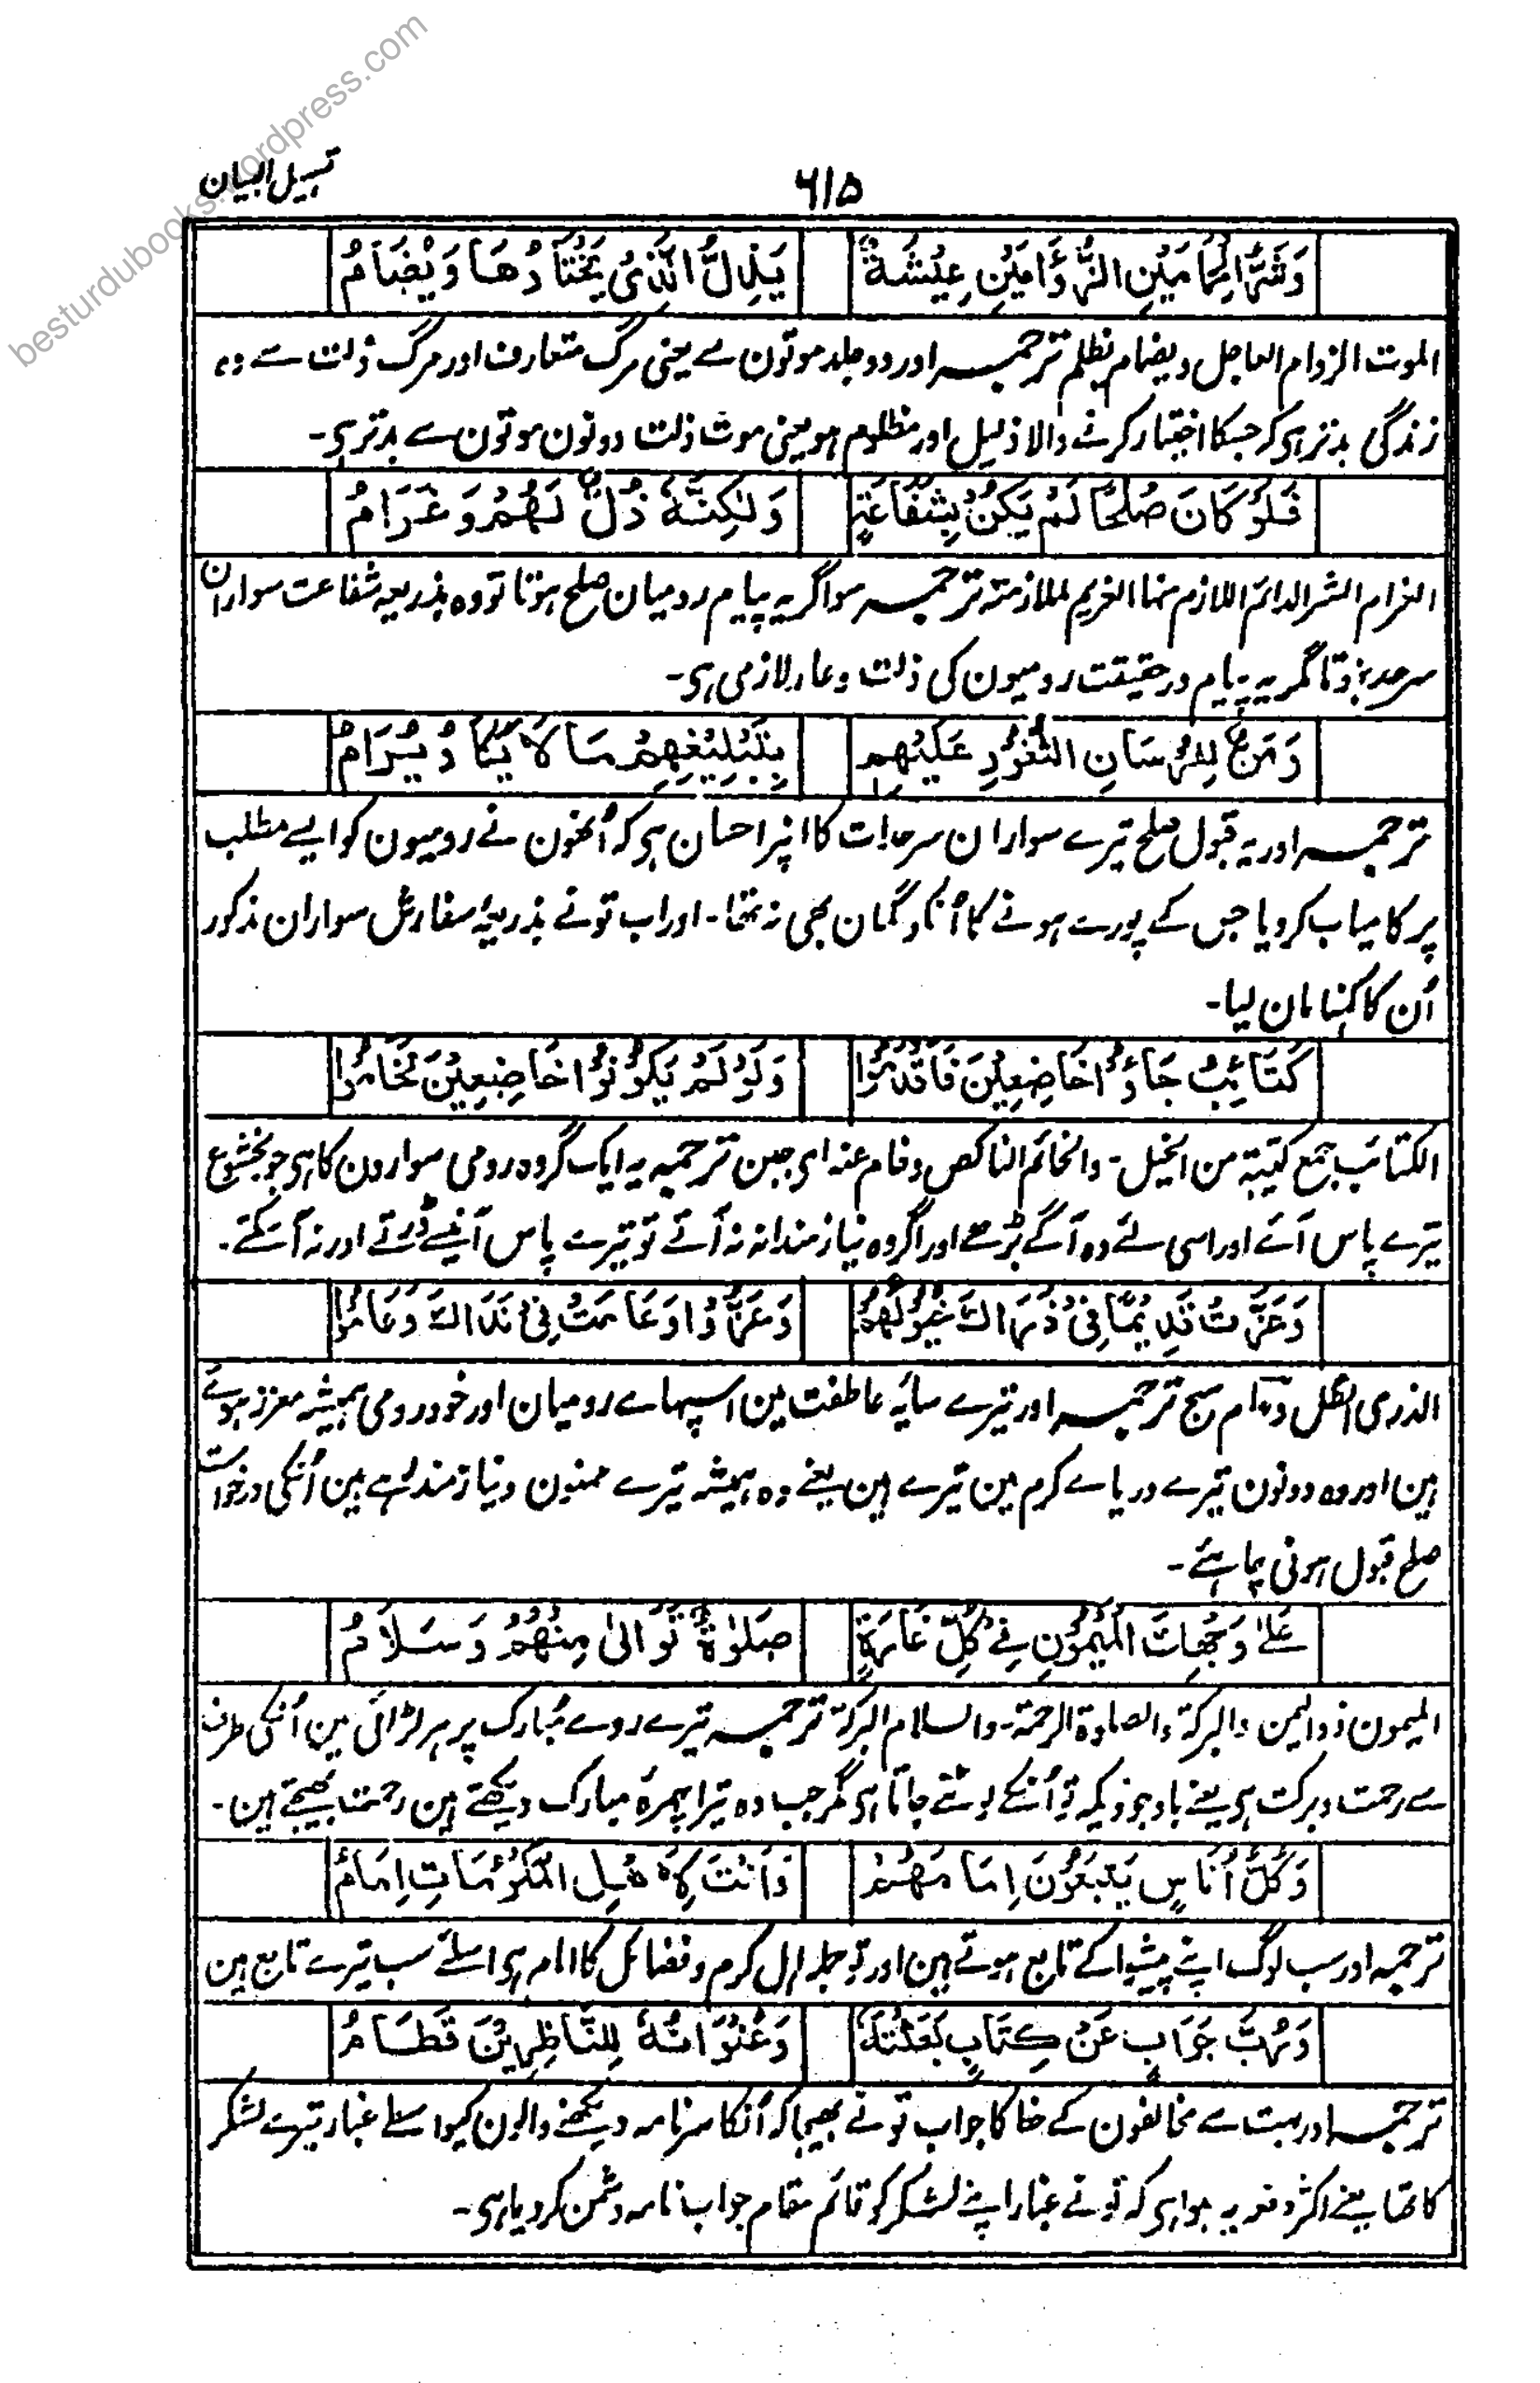 besturdubooks.wordpress.com
تسہیل البیان
۶۱۵
وَشَرُّ الْحِمَامَيْنِ الزُّؤَامَيْنِ عِيْشَةٌ يَذِلُّ الَّذِيْ يَخْتَارُهَا وَيُضَامُ
الموت الزوام العاجل ویضام یظلم ترجمہ اور دو جلد موتون سے یعنی مرگ متعارف اور مرگ ذلت سے وہ
زندگی بدتر ہی کہ جسکا اختیار کرنے والا ذلیل اور مظلوم ہو یعنی موت ذلت دونون موتون سے بدتر ہی۔
فَلَوْ كَانَ صُلْحًا لَمْ يَكُنْ بِشَفَاعَةٍ وَلٰكِنَّهٗ ذُلٌّ لَهُمْ وَغَرَامُ
الغرام الشر الدائم اللازم منہا الغریم لملازمتہ ترجمہ سو اگر یہ پیام رومیان صلح ہوتا تو وہ بذریعہ شفاعت سواران
سرحد نہوتا مگر یہ پیام درحقیقت رومیون کی ذلت وعار لازمی ہی۔
وَمَنٌّ لِفُرْسَانِ الثُّغُوْرِ عَلَيْهِمِ بِتَبْلِيْغِهِمْ مَا لَا يَكَادُ يُرَامُ
ترجمہ اور یہ قبول صلح تیرے سواران سرحدات کا انپر احسان ہی کہ اُنھون نے رومیون کو ایسے مطلب
پر کامیاب کردیا جس کے پورے ہونے کا اُنکو گمان بھی نہ تھا۔ اور اب تونے بذریعۂ سفارش سواران مذکور
اُن کا کہنا مان لیا۔
كَتَائِبُ جَاؤُا خَاضِعِيْنَ فَاَقْدَمُوْا وَلَوْ لَمْ يَكُوْنُوْا خَاضِعِيْنَ لَخَامُوْا
الکتائب جمع کتیبۃ من الخیل۔ والخائم الناکص وخام عنہ ای جبن ترجمہ یہ ایک گروہ رومی سوارون کا ہی جو بخشوع
تیرے پاس آئے اور اسی لئے وہ آگے بڑھے اور اگر وہ نیازمندانہ نہ آتے تو تیرے پاس آنیسے ڈرتے اور نہ آسکتے۔
وَعَزَّتْ قَدِيْمًا فِيْ ذُرَاكَ خُيُوْلُهُمْ وَعَزُّوْا وَعَامَتْ فِيْ نَدَاكَ وَعَامُوْا
الذری الظل وعام سبح ترجمہ اور تیرے سایۂ عاطفت مین اسپہاے رومیان اور خود رومی ہمیشہ معزز ہوئے
ہین اور وہ دونون تیرے دریاے کرم مین تیرے ہین یعنے وہ ہمیشہ تیرے ممنون ونیازمند رہے ہین اُنکی درخواست
صلح قبول ہونی چاہئے۔
عَلٰى وَجْهِكَ الْمَيْمُوْنِ فِيْ كُلِّ غَارَةٍ صَلٰوةٌ تَوَالٰى مِنْهُمُ وَسَلَامُ
المیمون ذوالیمن والبرکۃ والصلوۃ الرحمۃ۔ والسلام البرکۃ ترجمہ تیرے روے مبارک پر ہر لڑائی مین اُنکی طرف
سے رحمت وبرکت ہی یعنے باوجودیکہ تو اُنکے لوٹنے جاتا ہی مگر جب وہ تیرا چہرۂ مبارک دیکھتے ہین رحمت بھیجتے ہین۔
وَكُلُّ اُنَاسٍ يَتْبَعُوْنَ اِمَامَهُمْ وَاَنْتَ لِاَهْلِ الْمَكْرُمَاتِ اِمَامُ
ترجمہ اور سب لوگ اپنے پیشوا کے تابع ہوتے ہین اور تو جملہ اہل کرم وفضائل کا امام ہی اسلئے سب تیرے تابع ہین
وَرُبَّ جَوَابٍ عَنْ كِتَابٍ بَعَثْتَهٗ وَعُنْوَانُهٗ لِلنَّاظِرِيْنَ قَتَامُ
ترجمہ اور بہت سے مخالفون کے خط کا جواب تونے بھیجا کہ اُنکا سرنامہ دیکھنے والون کیواسطے غبار تیرے لشکر
کا تھا یعنے اکثر دفعہ یہ ہوا ہی کہ تونے غبار اپنے لشکر کو قائم مقام جواب نامہ دشمن کردیا ہی۔